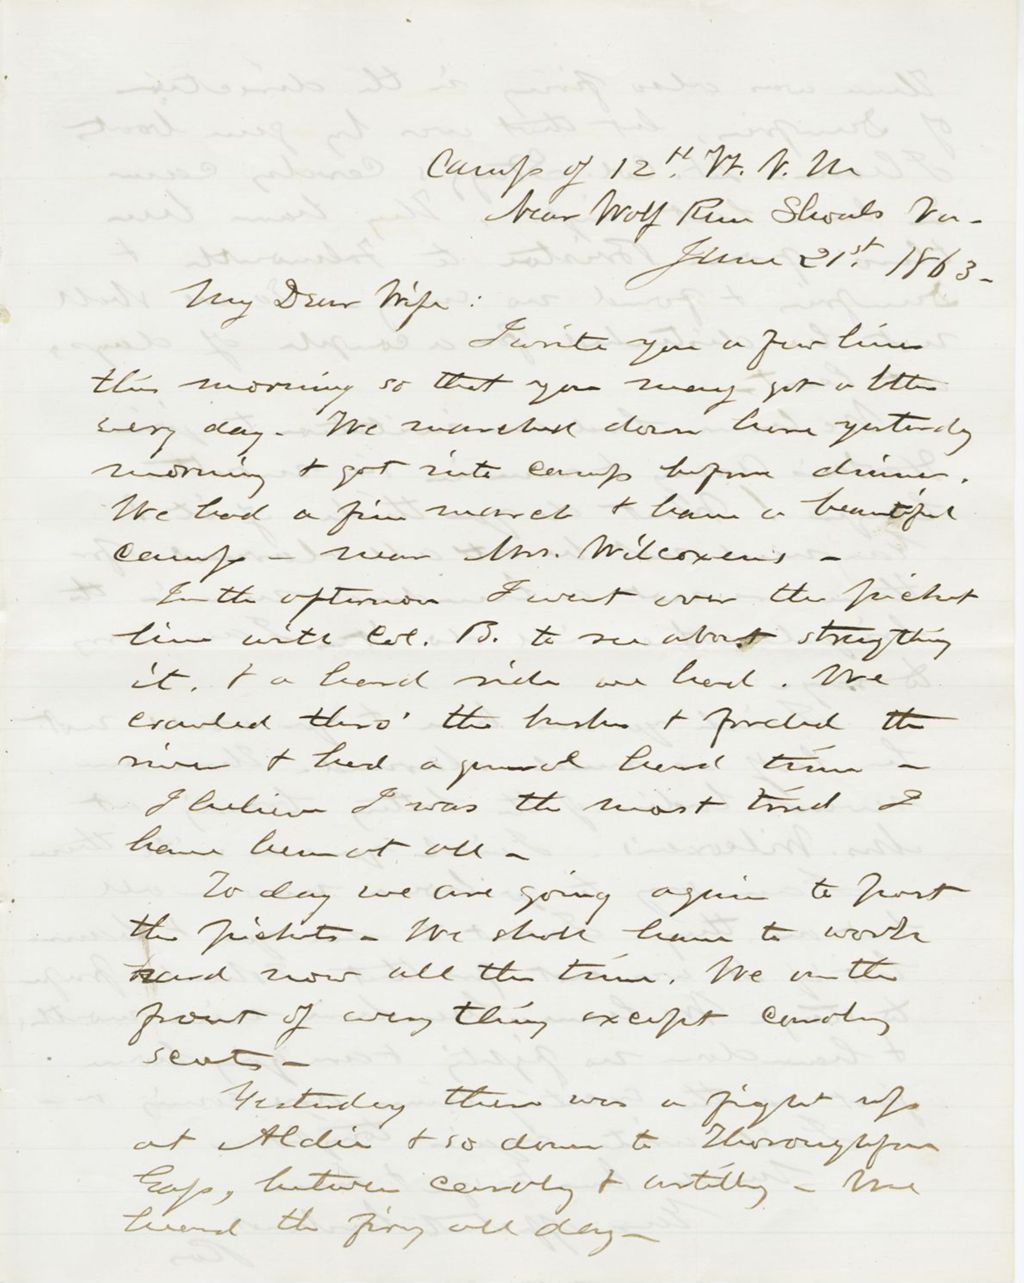 Camp of 12th. Vt. V. M
Near Wolf Run Shoals Va-
June 21st. 1863-
My Dear Wife:
I write you a few lines
this morning so that you may get a letter
every day- We marched down here yesterday
morning & got into camp before dinner.
We had a fine march & have a beautiful
camp - near Mrs. Wilcoxens -
In the afternoon I went over the picket
line with Col. B. to see about strengthing
it. & a hard ride we had. We
crawled thro' the bushes & forded the
river & had a general hard time -
I believe I was the most tired I
have been at all -
To day we are going again to post
the pickets - We shall have to work
hard now all the time. We are the
front of every thing except cavalry
scouts -
Yesterday there was a fight up
at Aldie & so down to Thoroughfare
Gap, between cavalry & artillery - We
heard the firing all day -